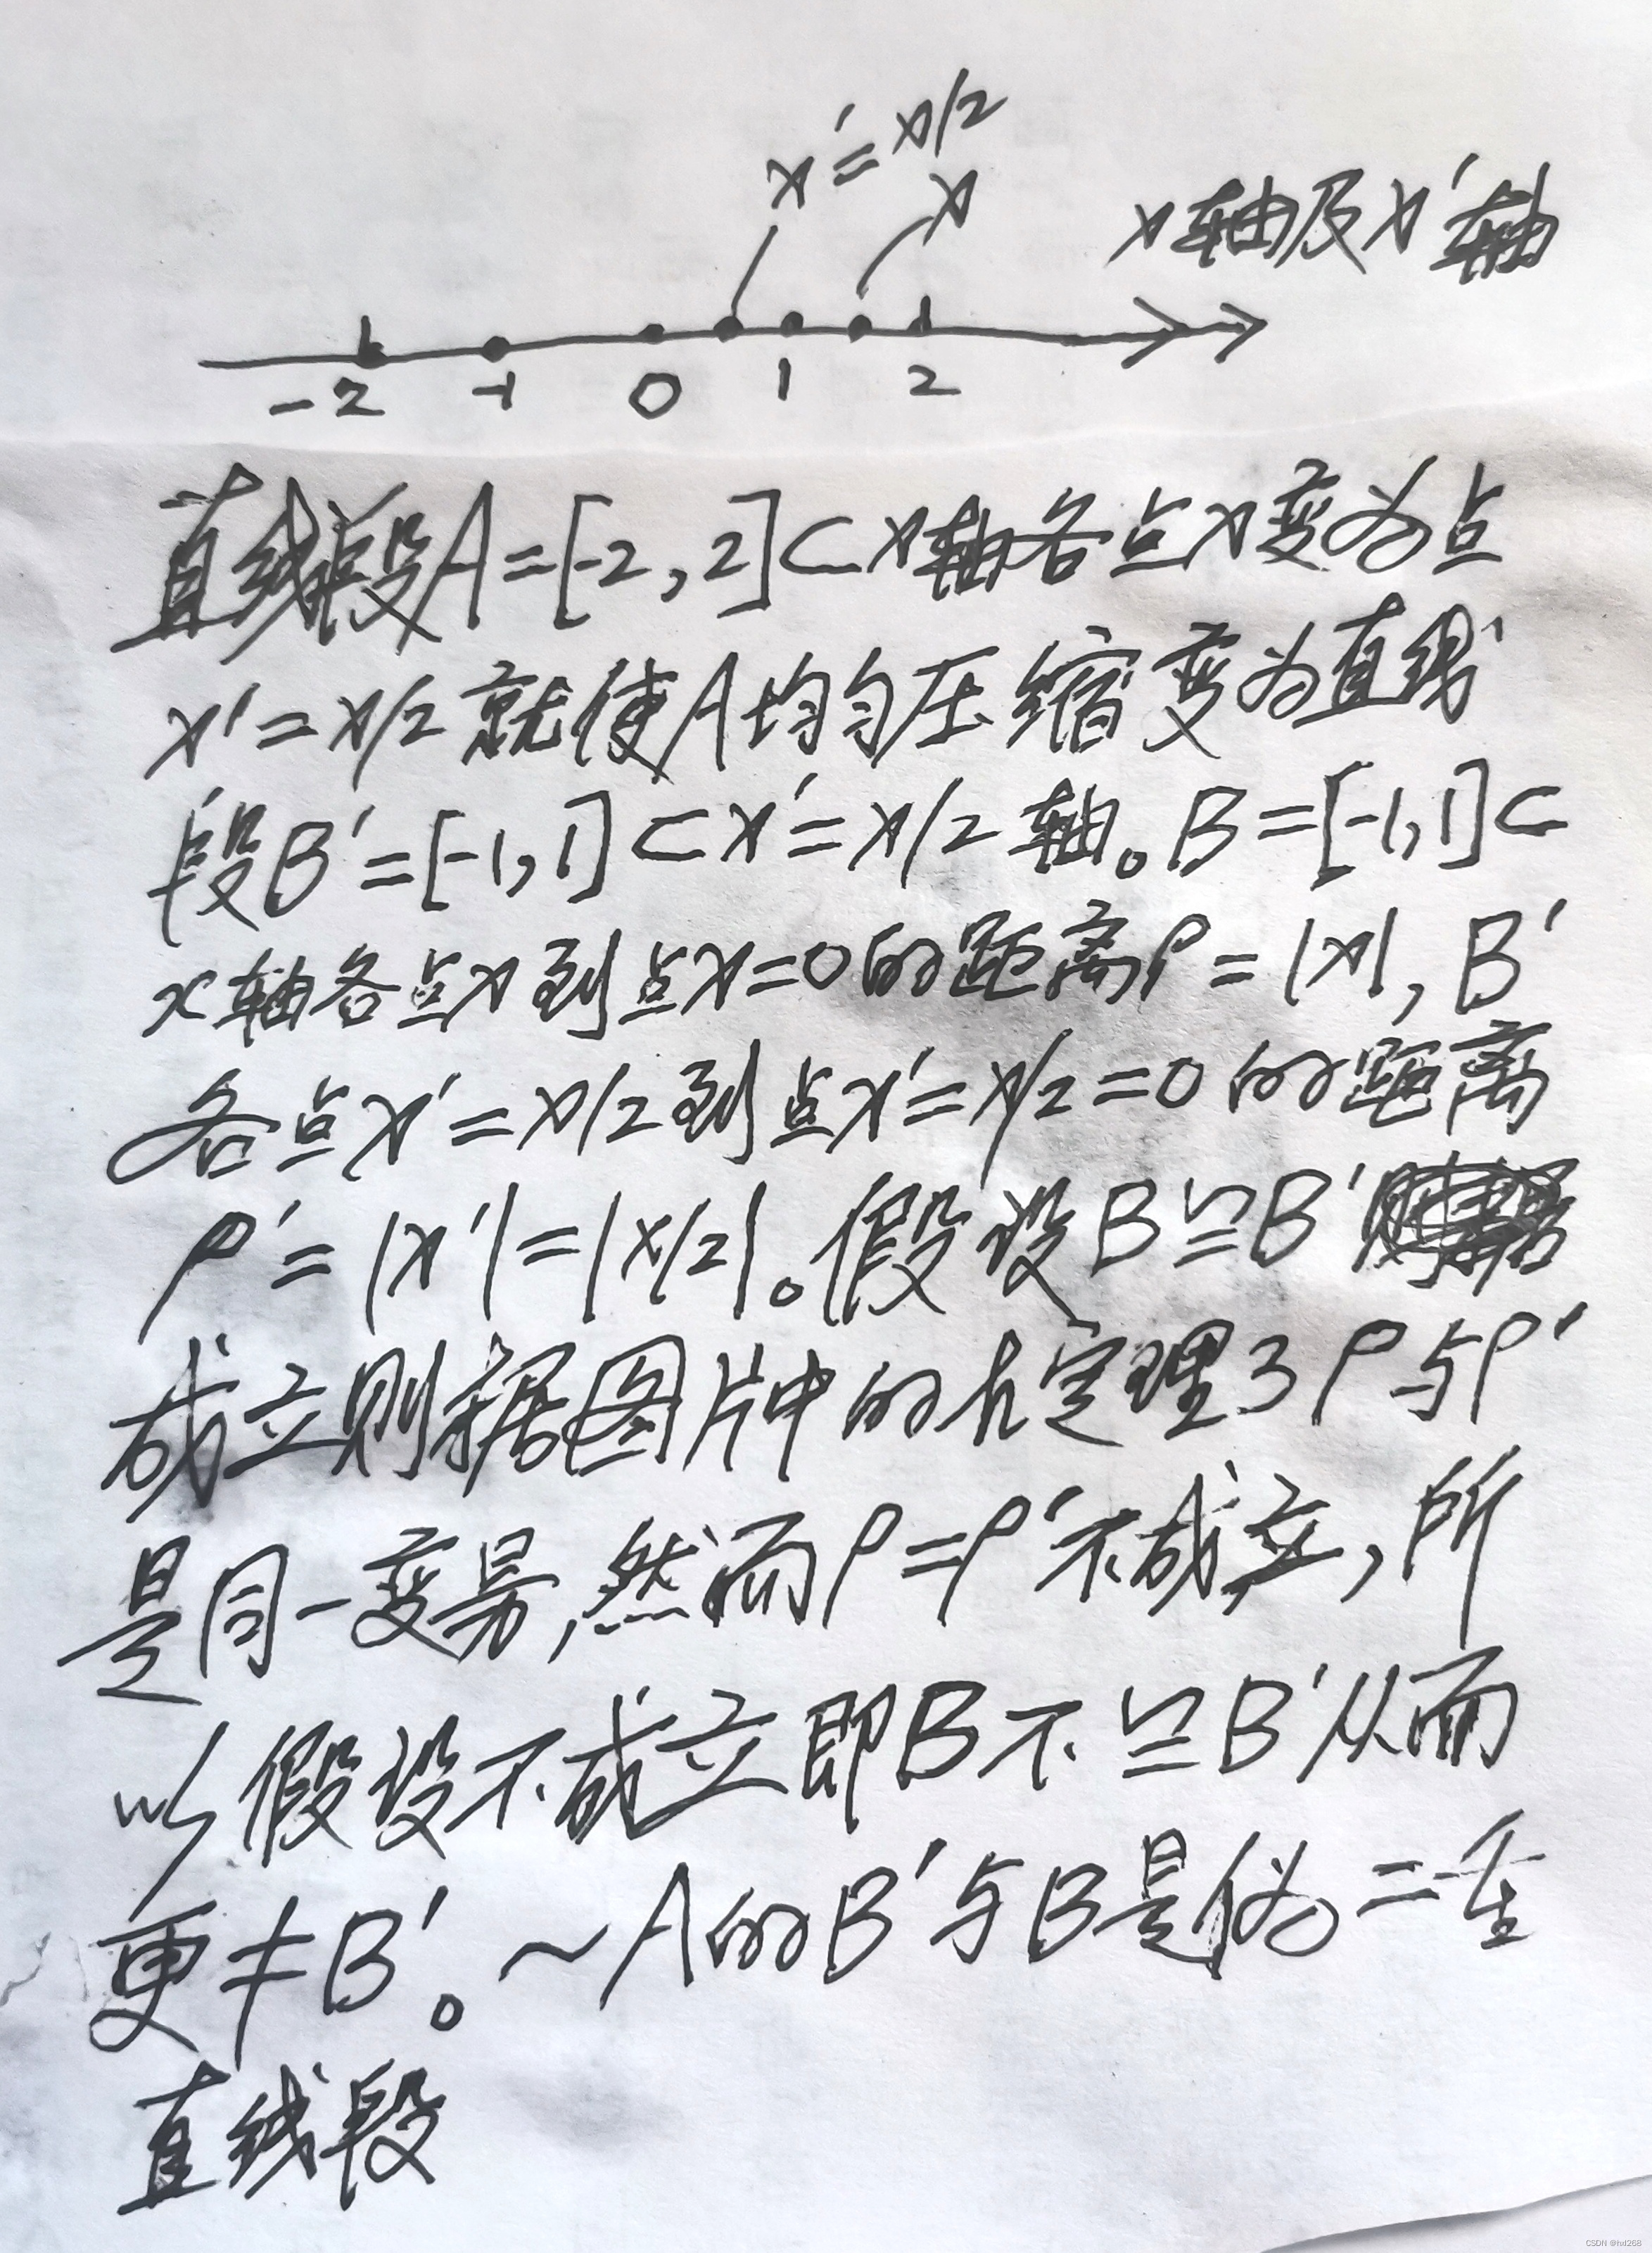 x′=x/2
x
x轴及x′轴
-2 -1 0 1 2
直线段A=[-2,2]⊂x轴各点x变为点
x′=x/2就使A均匀压缩变为直线
段B′=[-1,1]⊂x′=x/2轴。B=[-1,1]⊂
x轴各点x到点x=0的距离ρ=|x|,B′
各点x′=x/2到点x′=x/2=0的距离
ρ′=|x′|=|x/2|。假设B≌B′
成立则据图片中的h定理3ρ与ρ′
是同一变易,然而ρ=ρ′不成立,所
以假设不成立即B不≌B′从而
更≠B′。~A的B′与B是伪二重
直线段
CSDN @hxl268